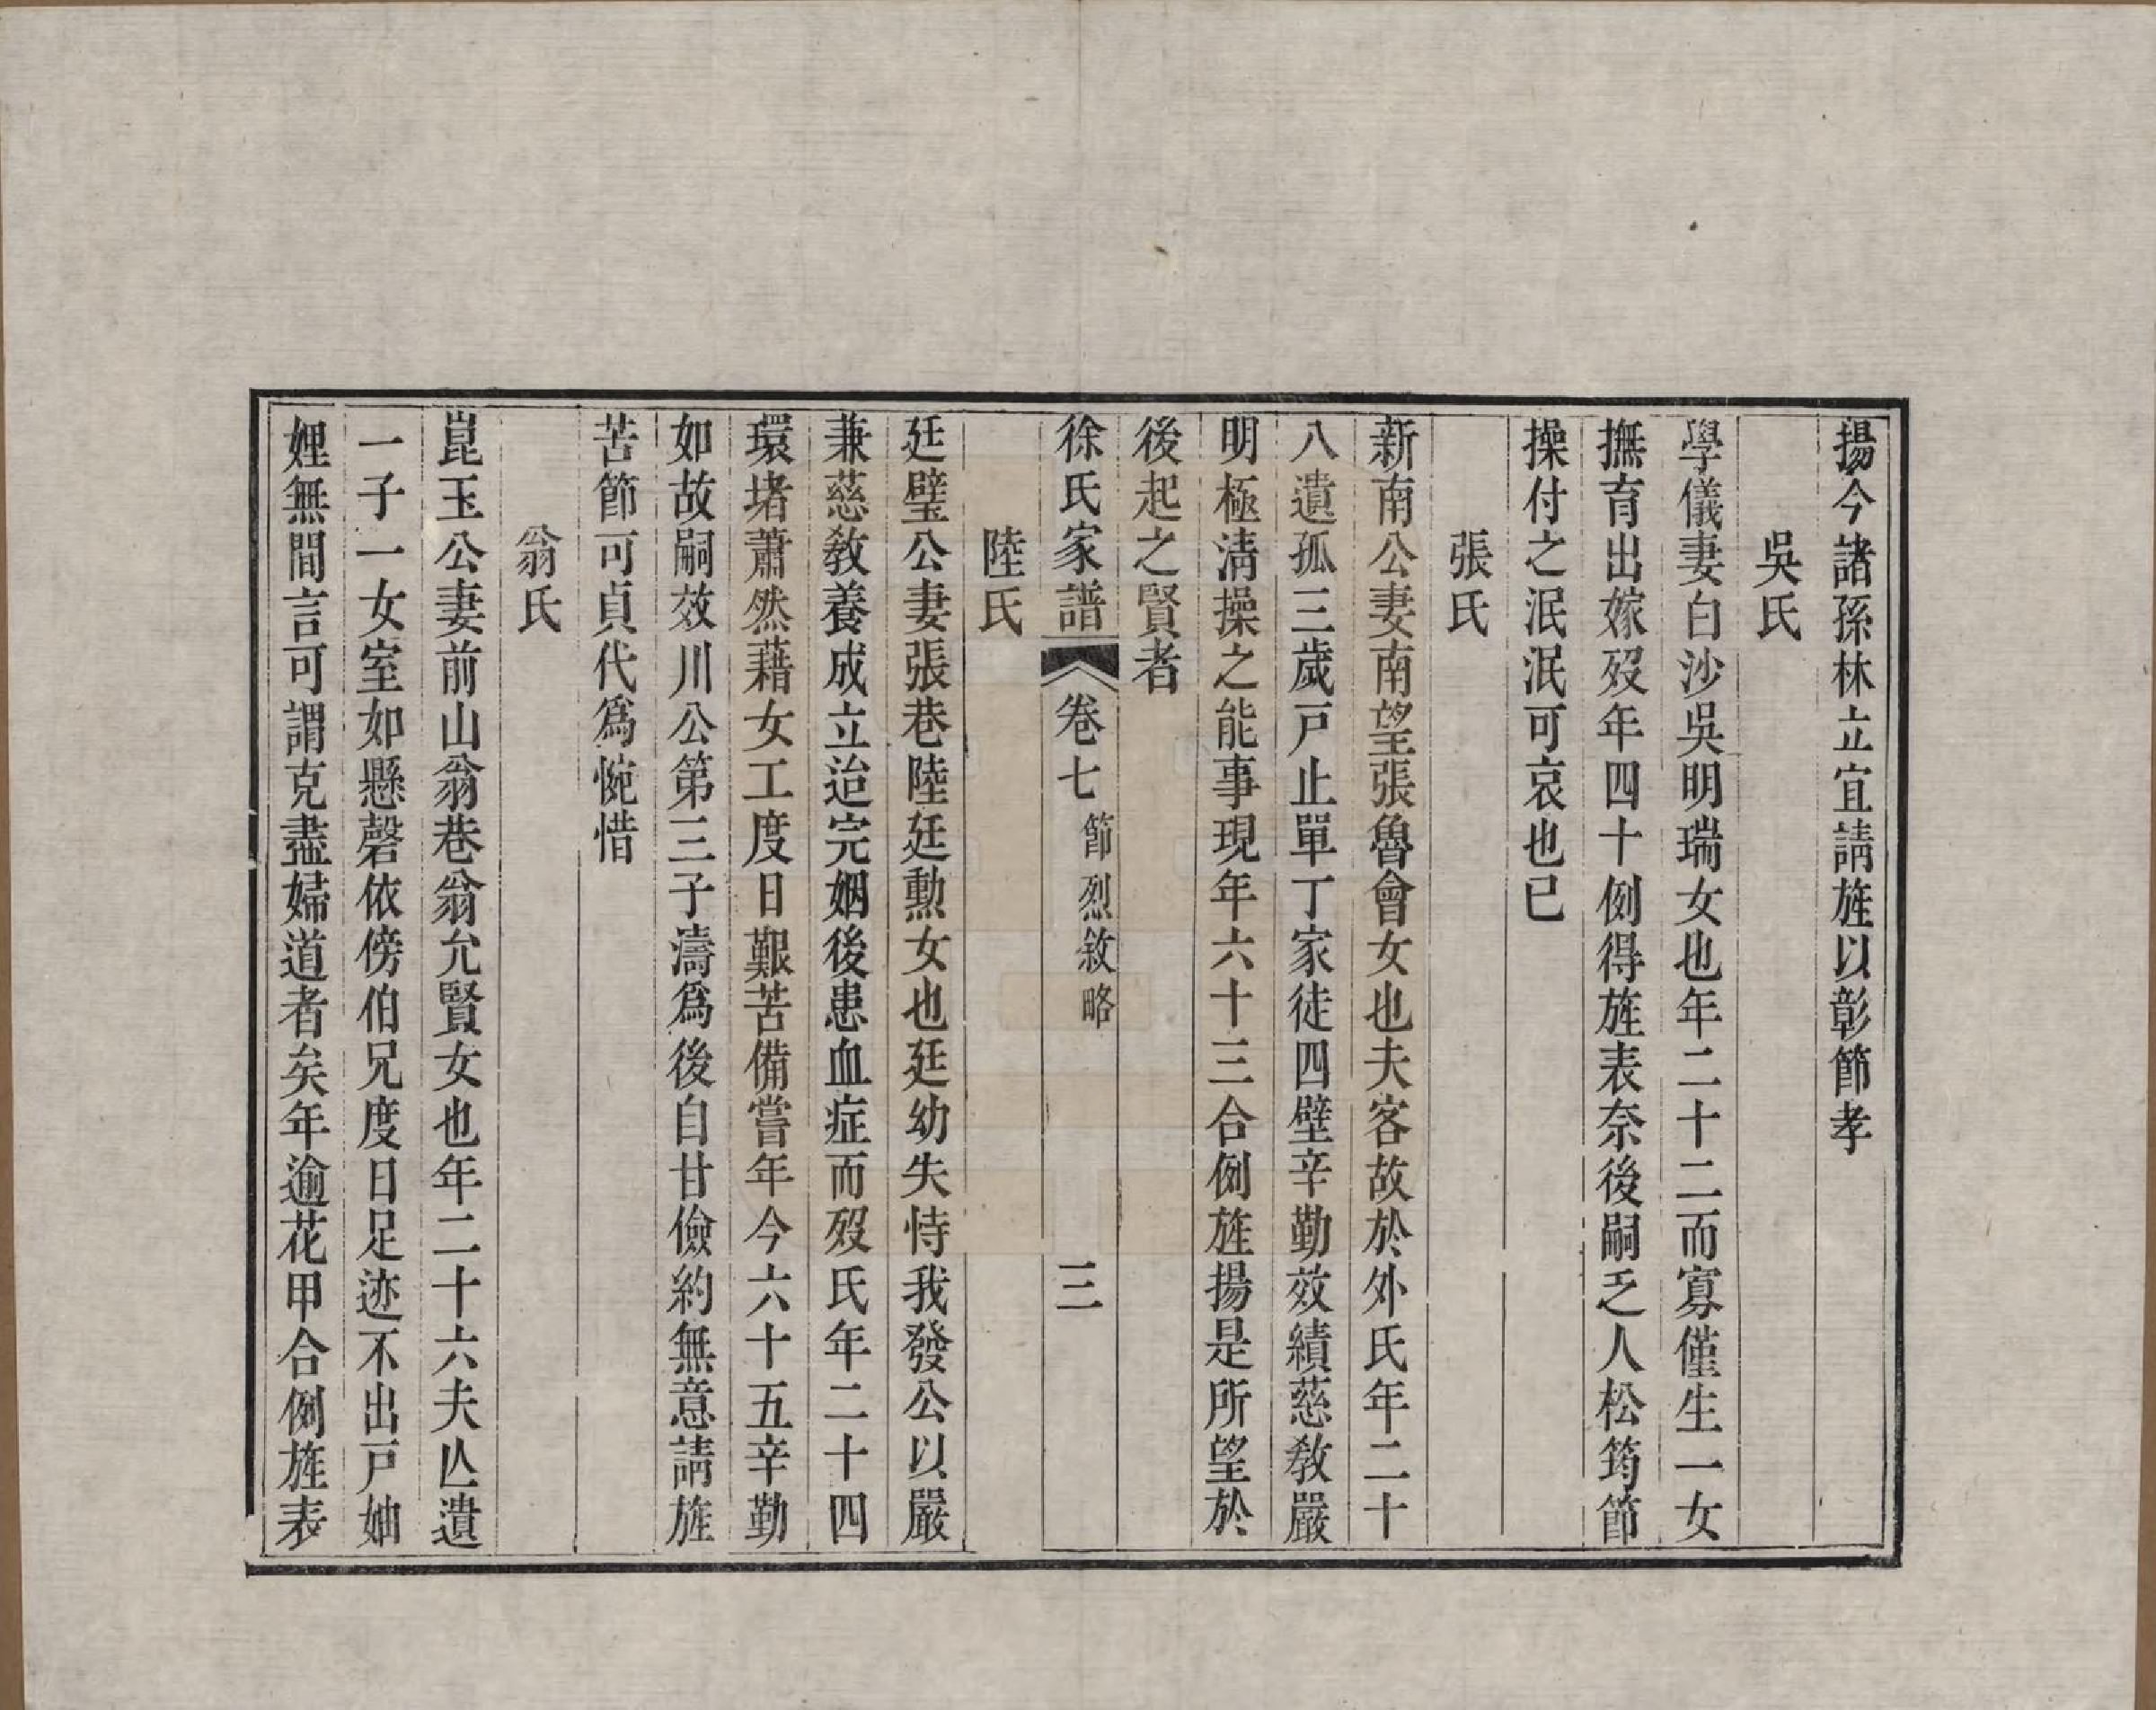 揚今諸孫林立宜請旌以彰節孝
吳氏
學儀妻白沙吳明瑞女也年二十二而寡僅生一女
撫育出嫁歿年四十例得旌表奈後嗣乏人松筠節
操付之泯泯可哀也已
張氏
新南公妻南望張魯會女也夫客故於外氏年二十
八遺孤三歲戸止單丁家徒四壁辛勤效績慈敎嚴
明極淸操之能事現年六十三合例旌揚是所望於
後起之賢者
徐氏家譜 卷七 節烈敘略 三
陸氏
廷璧公妻張巷陸廷勲女也廷幼失恃我發公以嚴
兼慈敎養成立迨完姻後患血症而歿氏年二十四
環堵蕭然藉女工度日艱苦備嘗年今六十五辛勤
如故嗣效川公第三子濤爲後自甘儉約無意請旌
苦節可貞代爲惋惜
翁氏
崑玉公妻前山翁巷翁允賢女也年二十六夫亾遺
一子一女室如懸磬依傍伯兄度日足迹不出戸妯
娌無間言可謂克盡婦道者矣年逾花甲合例旌表